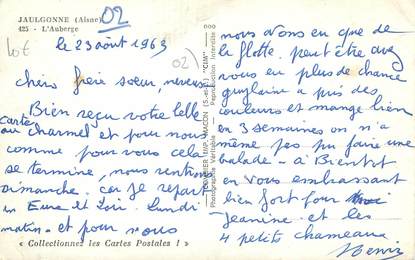 JAULGONNE (Aisne)
425 - L'Auberge
02
lot
le 23 août 1963
02)
chers frère sœur, neveux
Bien reçu votre belle
carte
au charmel et pour nous
comme pour vous cela
se termine, nous rentrons
dimanche. car je repart
en Eure et Loir. Lundi
matin. et pour nous
« Collectionnez les Cartes Postales ! »
COMBIER IMP. MACON (S.-et-L.) "CIM"
Photographie Véritable - Reproduction Interdite
nous avons eu que de
la flotte. peut être avez
vous eu plus de chance
guylaine a pris des
couleurs et mange bien
en 3 semaines on n'a
même pas pu faire une
balade - a Bientôt
en vous embrassant
bien fort pour
Jeanine. et les
4 petits chameaux